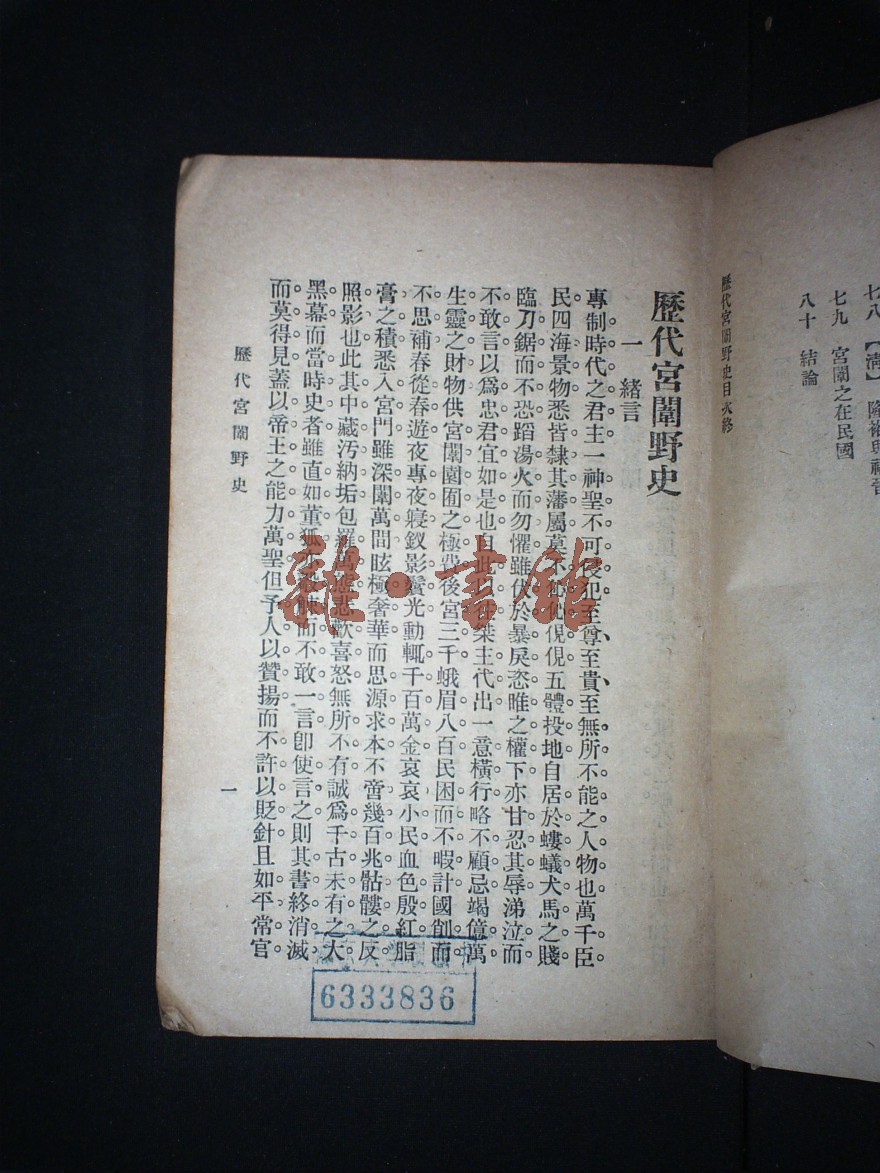 隆裕與
七九　宮闈之在民國
八十　結論
歷代宮闈野史目次終
歷代宮闈野史
一　緒言
專制時代之君主一神聖不可侵犯至尊至貴至無所不能之人物也萬千臣
民四海景物悉皆隸其藩屬莫不俔俔五體投地自居於螻蟻犬馬之賤
臨刀鋸而不恐蹈湯火而勿懼雖伏於暴戾恣睢之權下亦甘忍其辱涕泣而
不敢言以爲忠君宜如是也自此以往桀主代出一意橫行略不顧忌竭億萬
生靈之財物供宮闈園囿之極費後宮三千蛾眉八百民困而不暇計國創而
不思補春從春遊夜專夜寢釵影鬢光動輒千百萬金哀哀小民血色殷紅脂
膏之積悉入宮門雖深闈萬間眩極奢華而思源求本不啻幾百兆骷髏之反
照影也此其中藏汚納垢包羅萬態悲歡喜怒無所不有誠爲千古未有之大
黑幕而當時史者雖直如董狐亦而不敢一言卽使言之則其書終消滅
而莫得見蓋以帝王之能力萬聖但予人以贊揚而不許以貶針且如平常官
歷代宮闈野史
一
雜·書館
6333836